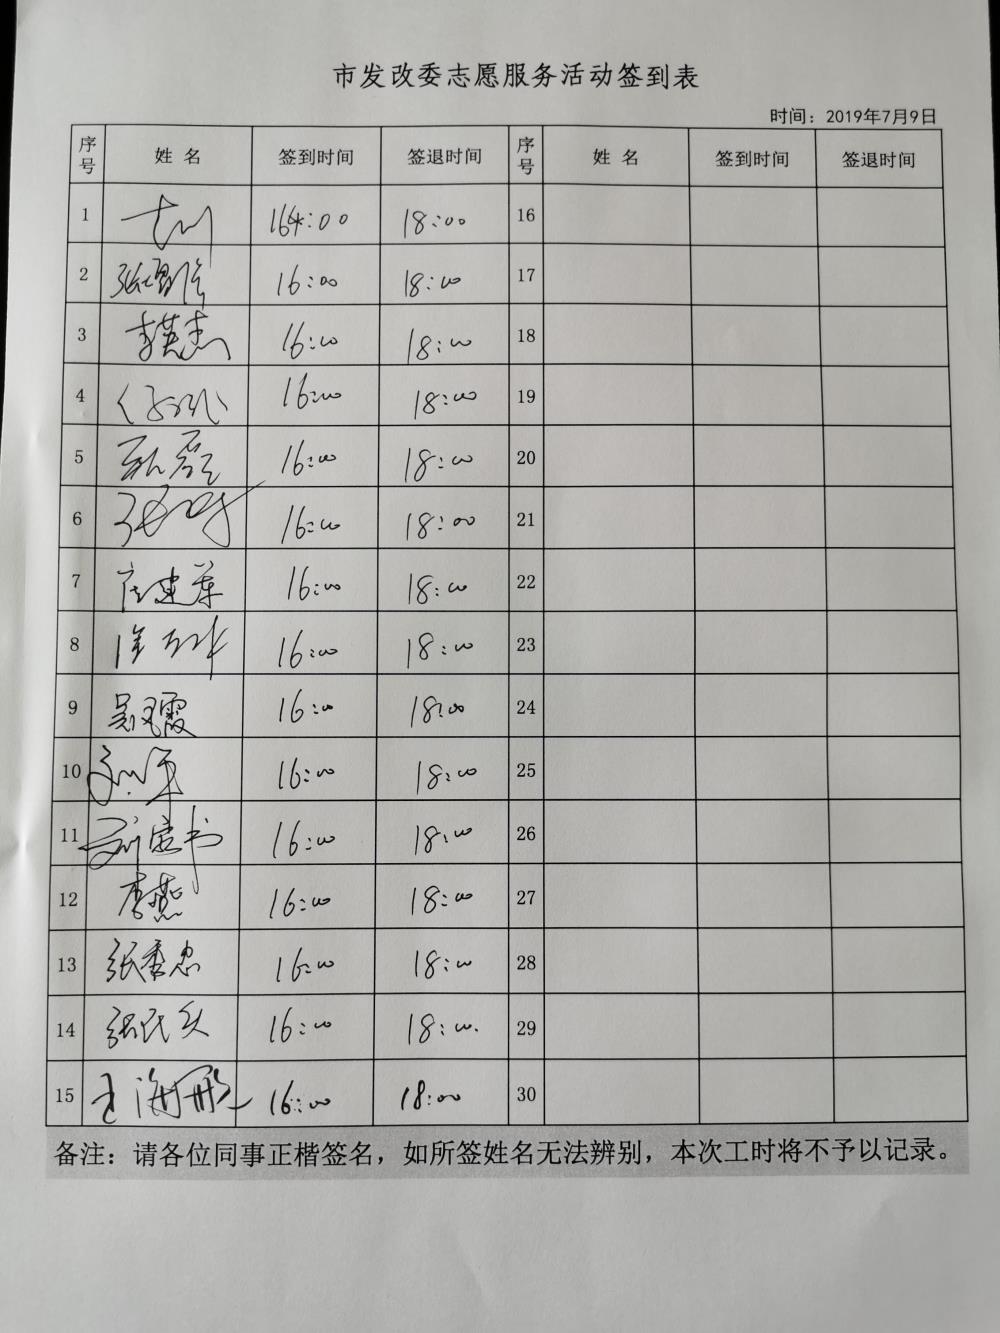 市发改委志愿服务活动签到表
时间：2019年7月9日
序号 姓名 签到时间 签退时间 序号 姓名 签到时间 签退时间
1 164:00 18:00 16
2 16:00 18:00 17
3 李英杰 16:00 18:00 18
4 16:00 18:00 19
5 16:00 18:00 20
6 16:00 18:00 21
7 16:00 18:00 22
8 16:00 18:00 23
9 吴凤霞 16:00 18:00 24
10 16:00 18:00 25
11 刘宝书 16:00 18:00 26
12 李燕 16:00 18:00 27
13 张秀忠 16:00 18:00 28
14 16:00 18:00. 29
15 王海鹏 16:00 18:00 30
备注：请各位同事正楷签名，如所签姓名无法辨别，本次工时将不予以记录。